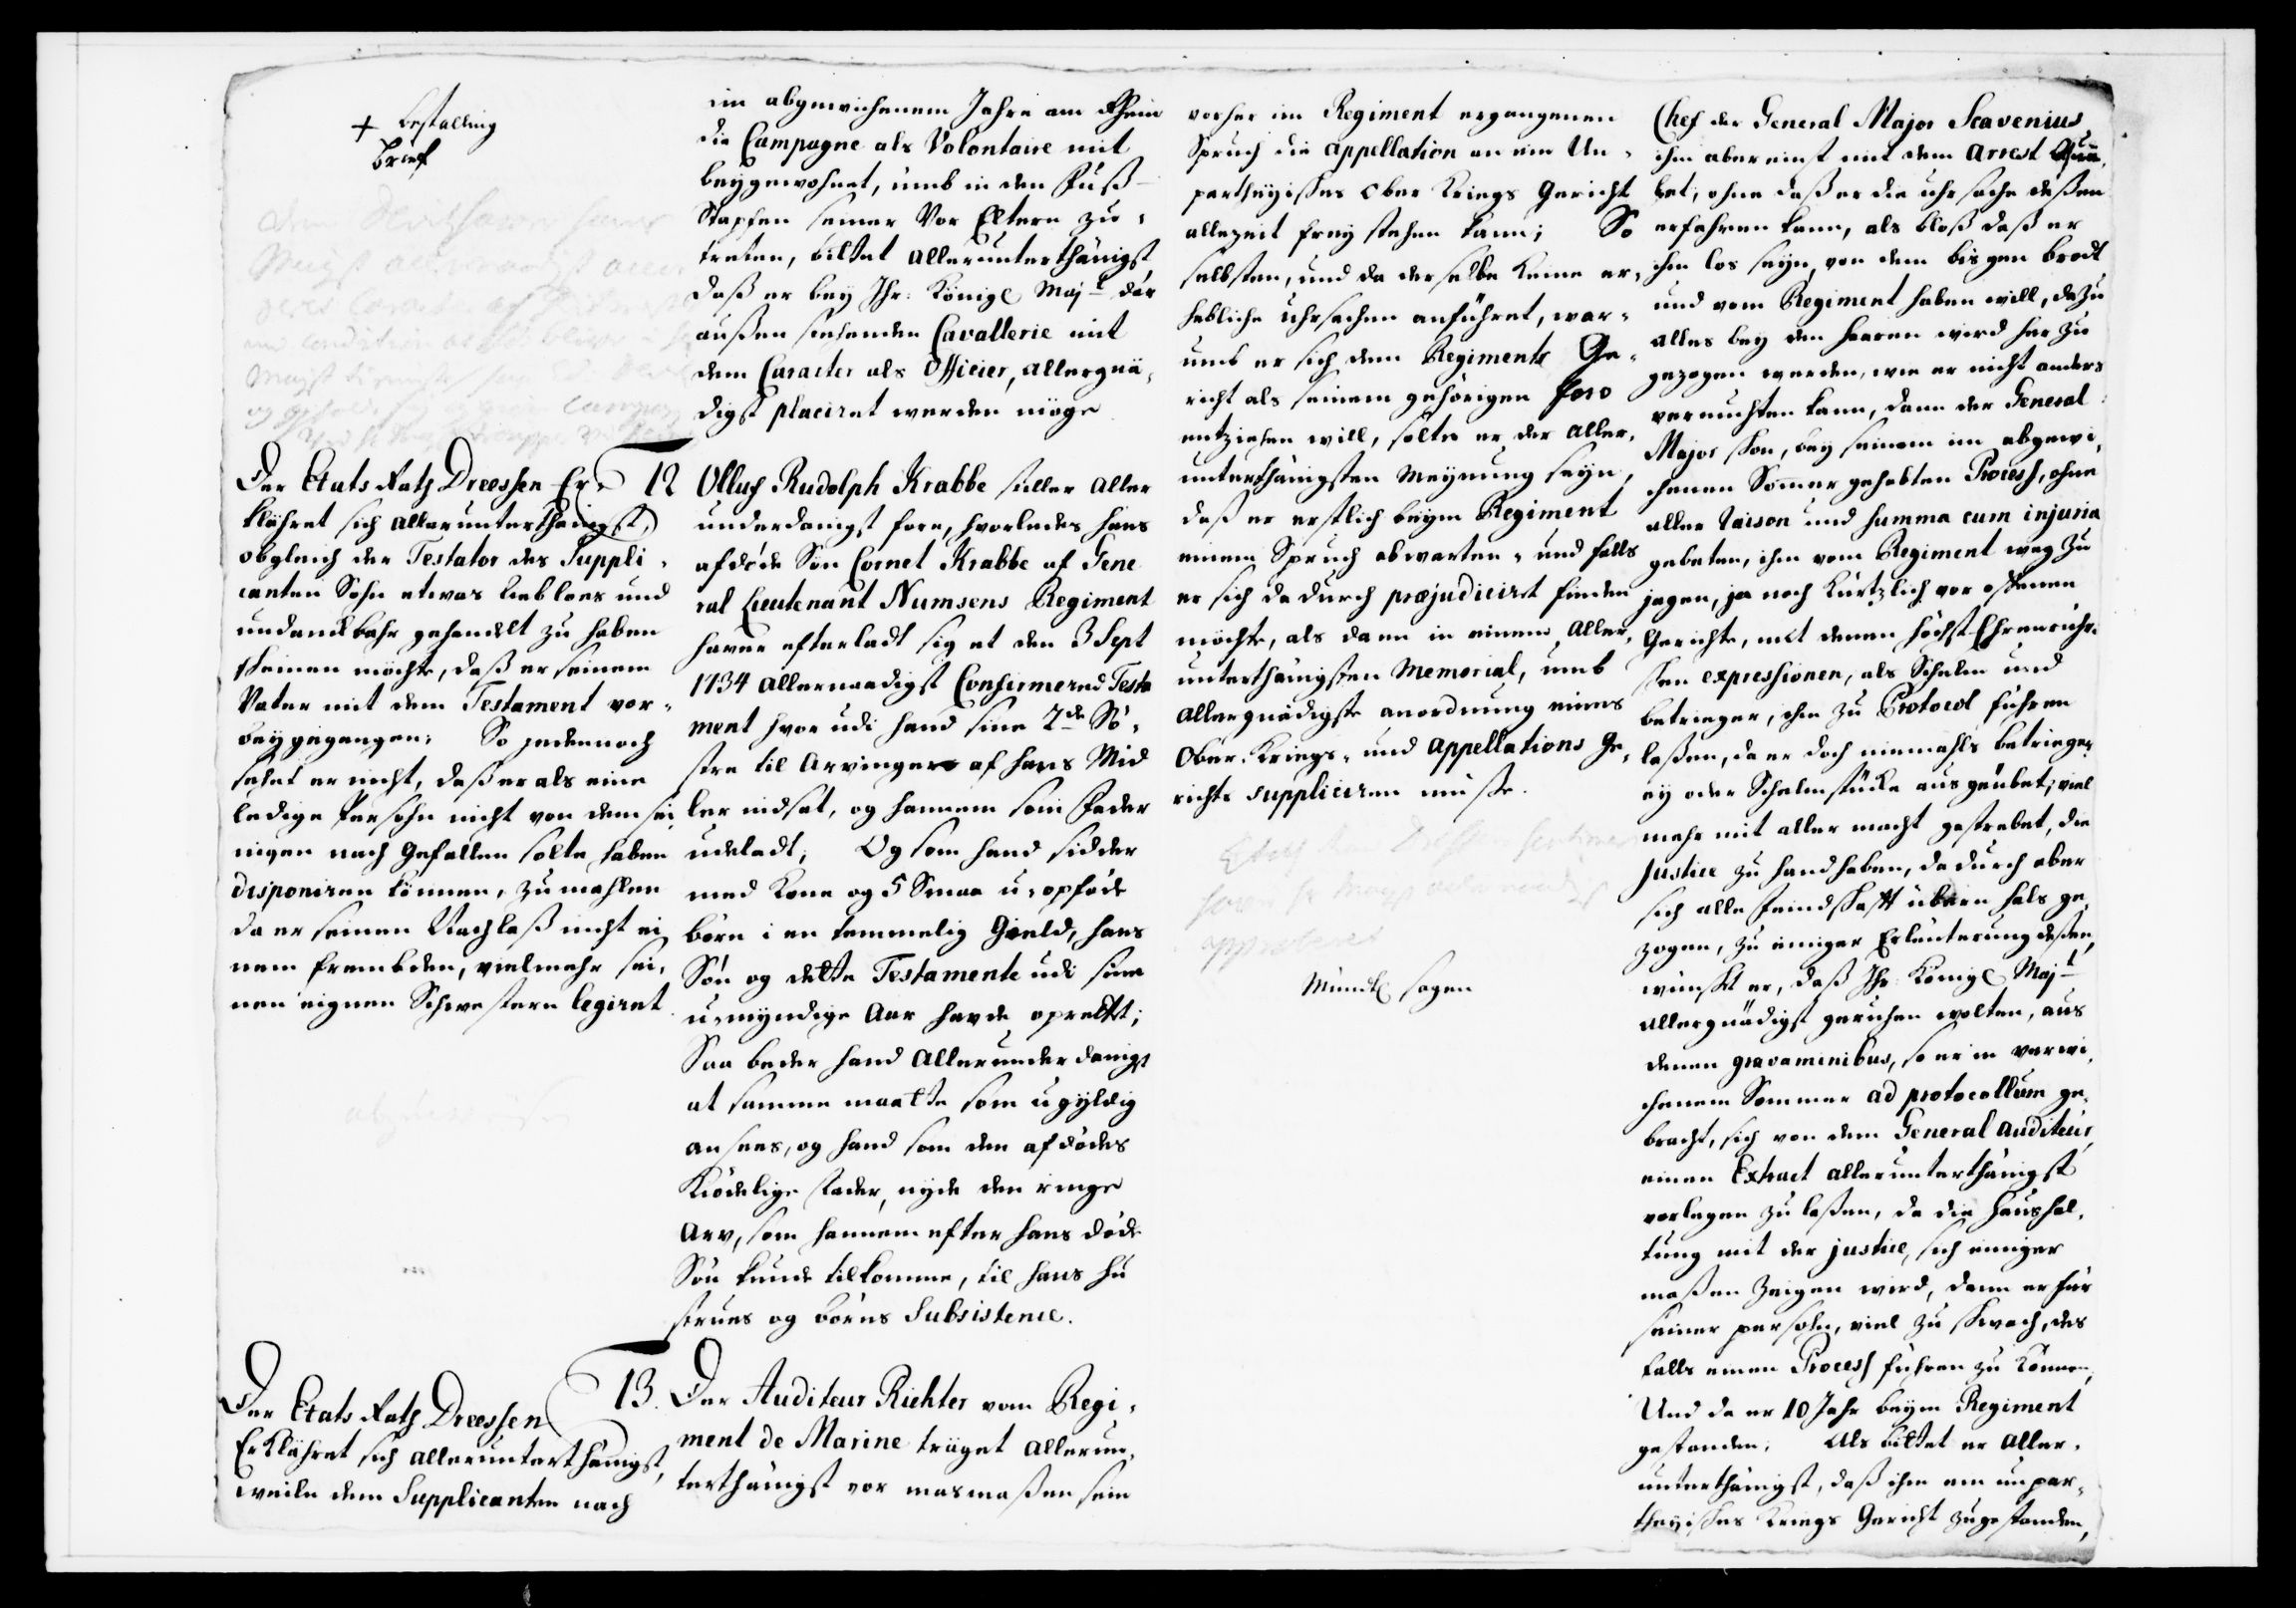 + bestalling
brief
Der Etats Rath Dreessen Er-
klähret sich allerunterthänigst,
obgleich der Testator des Suppli-
canten Sohn etwas liebloes und
undanckbahr gehandelt zu haben
scheinen möchte, daß er seinem
Vater mit dem Testament vor-
beygegangen; So jedennoch
sehet er nicht, daß er als eine
ledige Persohn nicht von dem sei-
nigen nach Gefallen solte haben
disponiren können, zumahlen
da er seinen Nachlaß nicht ei-
nem frembden, vielmehr sei-
nen eignen Schwestern legiret.
Der Etats Rath Dreessen
Erklähret sich allerunterthänigst,
weile dem Supplicanten nach
im abgewichenem Jahre am Rhein
die Campagne als Volontaire mit
beygewohnet, umb in den Fuß-
Stapfen seiner Vor Eltern zu-
treten, bittet allerunterthänigst
daß er bey Ihr: Königl Majt der
außen stehenden Cavallerie mit
dem Caracter als Officier, allergnä-
digst placiret werden möge
12 Olluf Rudolph Krabbe stiller aller
underdanigst fore, hvorledes hans
afdöde Sön Cornet Krabbe af Gene
ral Lieutenant Numsens Regiment
haver efterladt sig et den 3 Sept
1734 allernaadigst Confirmered Testa
ment hvor udi hand sine 2de Sö-
stre til Arvinger af hans Mid
ler indsat, og hannem som Fader
udeladt; Og som hand sidder
med Kone og 5 Smaa u-opföde
börn i en temmelig Gield, hans
Sön og dette Testamente udi sine
u-myndige Aar havde oprettet;
Saa beder hand allerunderdanigst
at samme maatte som ugyldig
ansees, og hand som den afdödes
Kiödelige Fader, nyde den ringe
Arv, som hannem efter hans döde
Sön kunde tilkomme, til hans hu
strues og börns Subsistence.
13. Der Auditeur Richter vom Regi-
ment de Marine träget allerun-
terthänigst vor masmaßen sein
vorher im Regiment ergangenen
Spruch die appellation an ein Un-
partheyisches Ober Kriegs Gericht
allezeit frey stehen kann; So
selbsten, und da derselbe keine er-
hebliche Uhrsachen anführet, war-
umb er sich dem Regiments Ge-
richt als seinem gehörigen foro
entziehen will, solte er der aller-
unterthänigsten Meynung seyn,
daß er erstlich beym Regiment
einen Spruch abwarten, und falls
er sich dadurch præjudiciret finden
möchte, als dann in einem aller-
unterthänigsten Memorial, umb
allergnädigste anordnung eines
Ober-Kriegs- und appellations Ge-
richts suppliciren müste.
Mündtl sagen
Chef der General Major Scavenius
ihm aber einst mit dem Arrest
bet, ohne daß er die uhrsache deßen
erfahren kann, als bloß daß er
ihm los seyn, von dem bisgen brodt
und vom Regiment haben will, dazu
alles bey den haaren wird her zu
gezogen werden, wie er nicht anders
vermuhten kann, dann der General
Major schon, bey seinem im abgewi-
chenen Sommer gehabten Process, ohne
aller raison und summa cum injuria
gebeten, ihm vom Regiment weg zu
jagen, ja noch kürtzlich vor offenem
Gerichte, mit denen höchst Ehrenrühri-
schen expressionen, als Schelm und
betrieger, ihm zu Protocol führen
laßen, da er doch niemahls betrieger-
ey oder Schelmstücke ausgeübet; viel
mehr mit aller macht gestrebet, die
Justice zu handhaben, dadurch aber
sich alle feindschafft übern hals ge-
zogen, zu einiger Erläuterung deßen,
wünscht er, daß Ihr: Königl Majt
allergnädigst geruhen wolten, aus
denen gravaminibus, so er in verwi-
chenem Sommer ad protocollum ge-
bracht, sich von dem General Auditeur,
einen Extract allerunterthänigst
vorlegen zu laßen, da die haushal-
tung mit der justice, sich einiger
maßen zeigen wird, dann er für
seiner persohn, viel zu schwach, des
falls einen Process führen zu können,
Und da er 10 Jahr beym Regiment
gestanden; Als bittet er aller-
unterthänigst, daß ihm ein unpar-
theyisches Kriegs Gericht zugestanden,